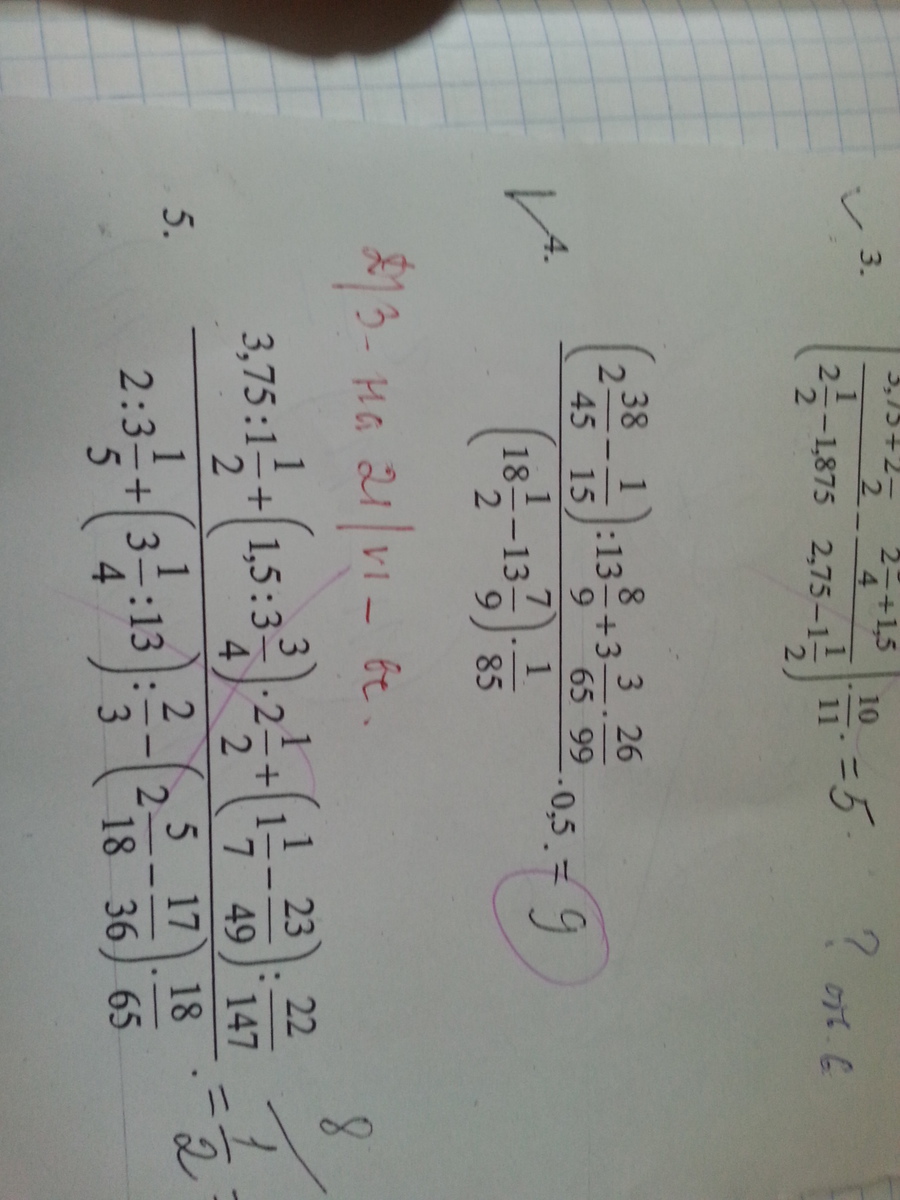 3. ( (3,75+2 1/2)/(2 1/2−1,875) − (2 3/4+1,5)/(2,75−1 1/2) ) · 10/11 . = 5 . ?
4. ( (2 38/45 − 1/15) : 13 8/9 + 3 3/65 · 26/99 ) / ( (18 1/2 − 13 7/9) · 1/85 ) · 0,5 . = 9
Д/З - на 21/VI -
8
5. ( 3,75 : 1 1/2 + (1,5 : 3 3/4) · 2 1/2 + (1 1/7 − 23/49) : 22/147 ) / ( 2 : 3 1/5 + (3 1/4 : 13) : 2/3 − (2 5/18 − 17/36) · 18/65 ) . = 1/2